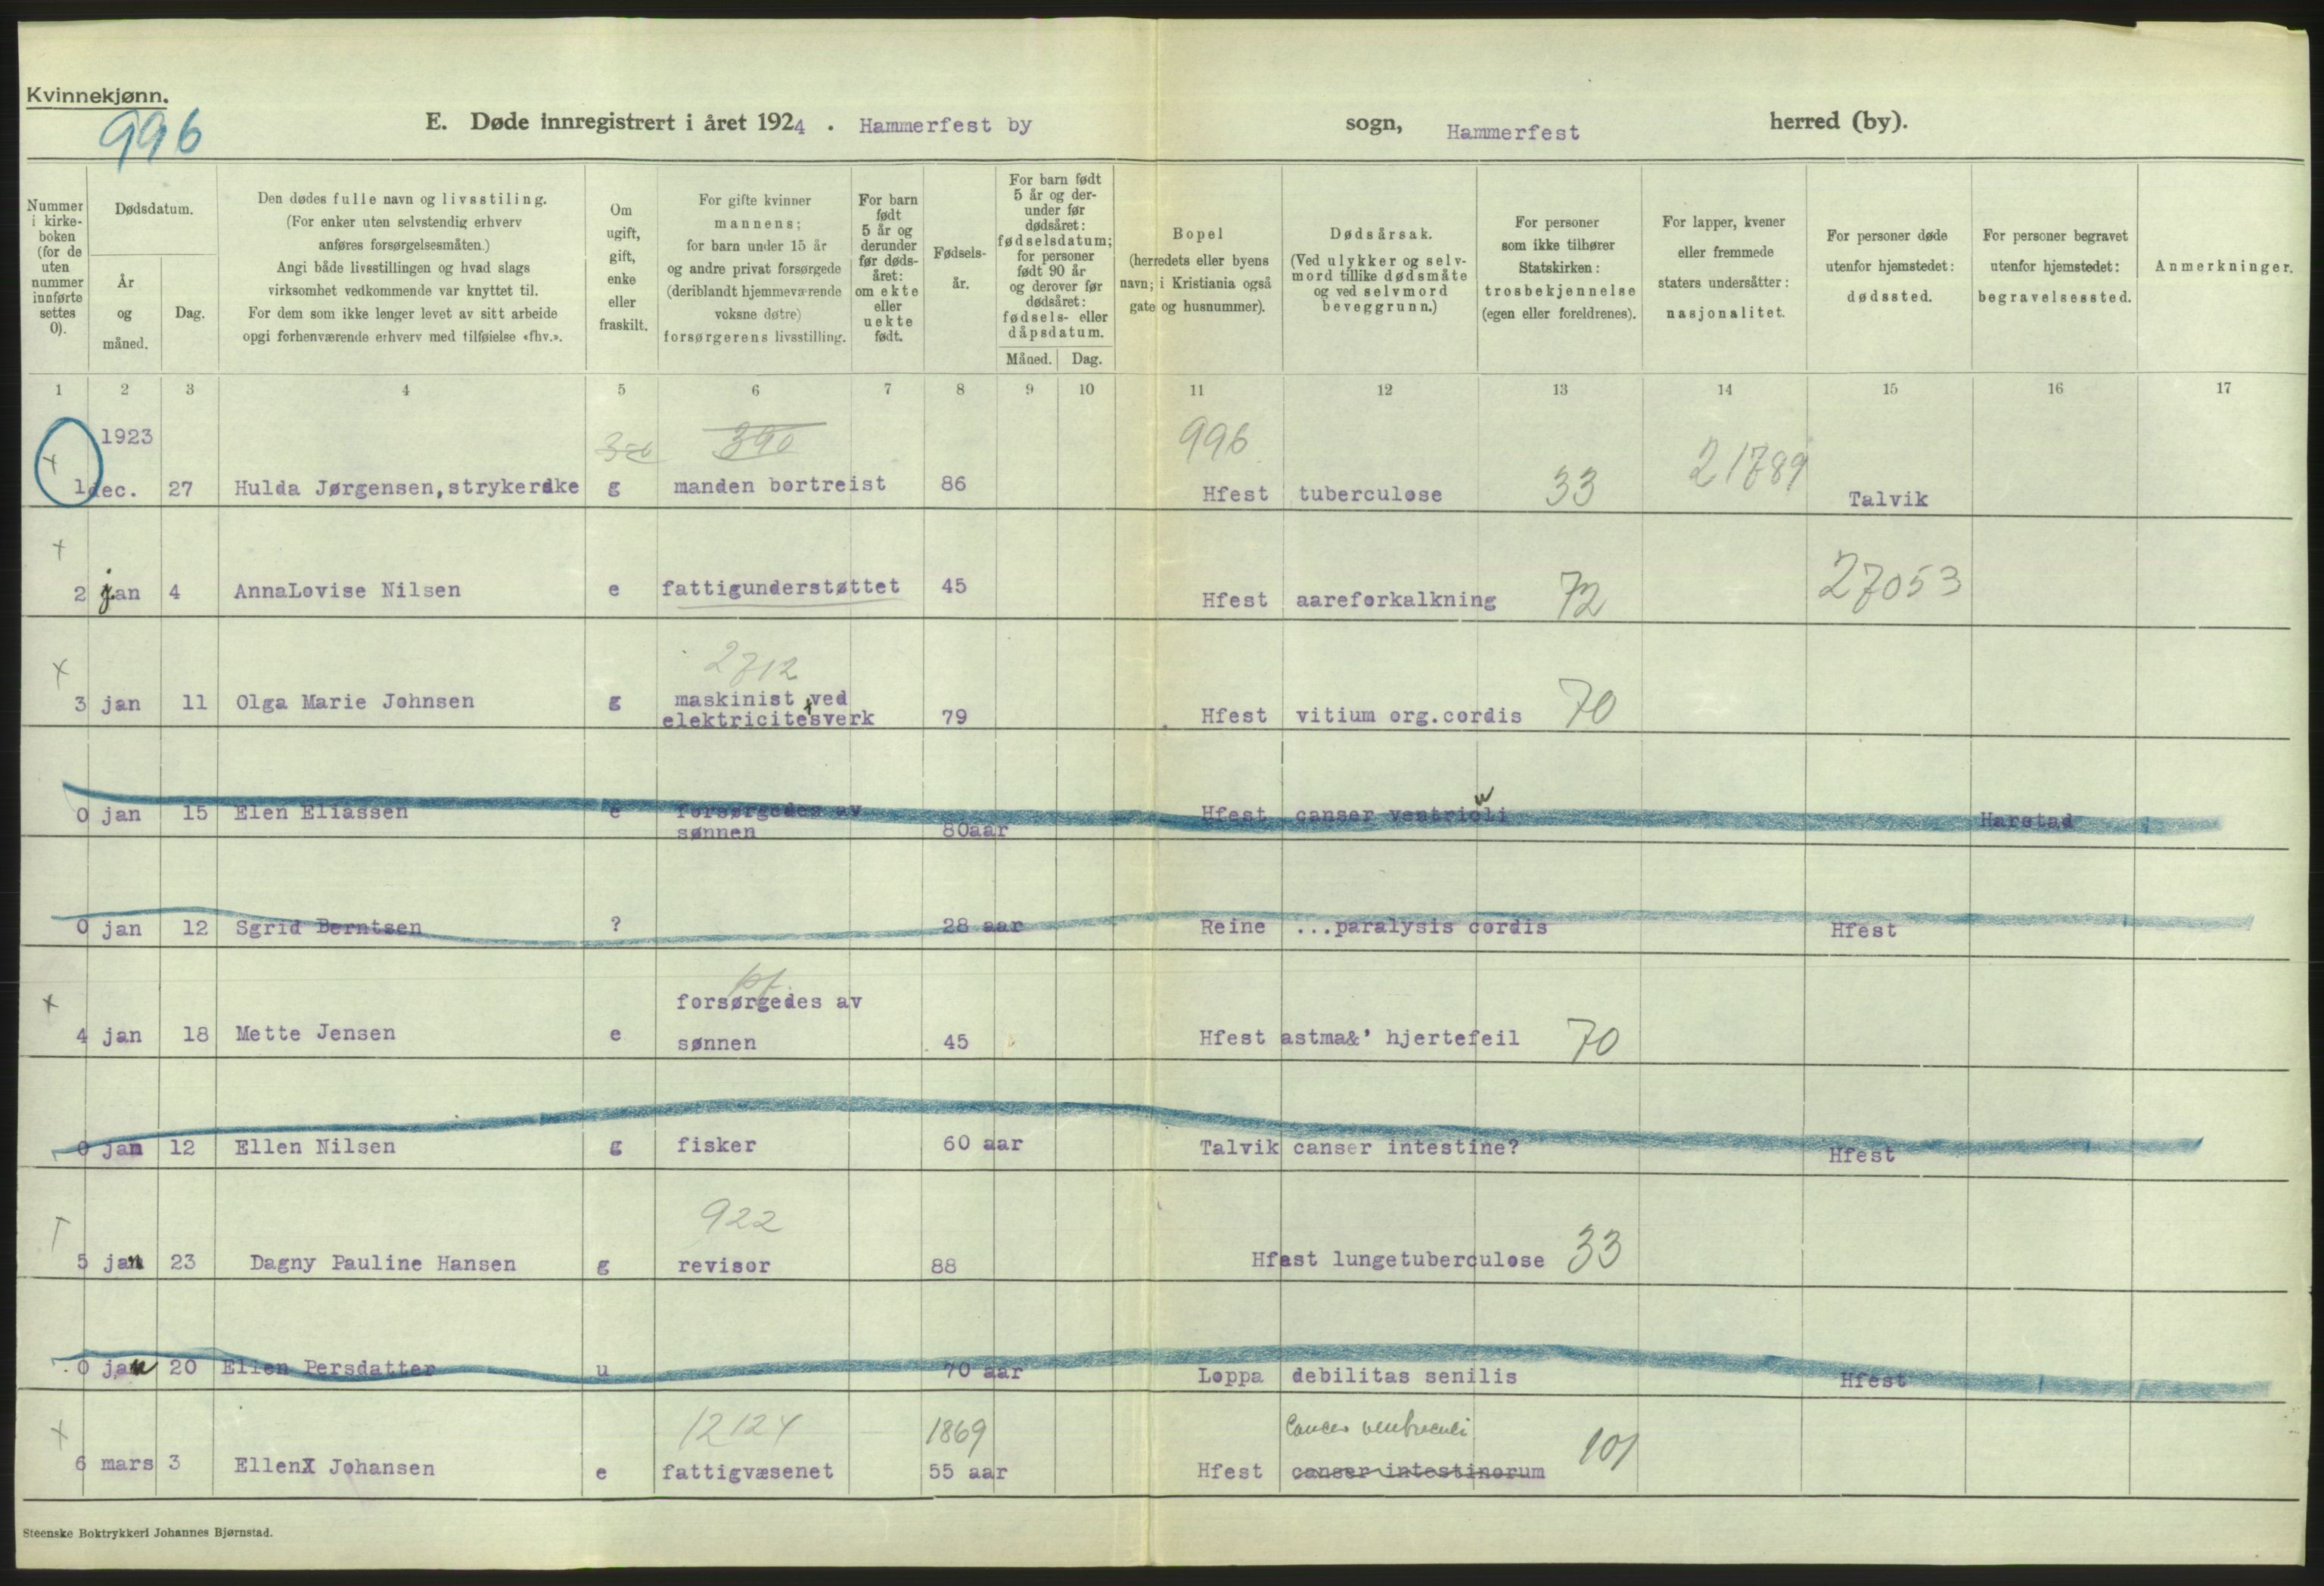 Kvinnekjønn.
996
E. Døde innregistrert i året 1924 . Hammerfest by sogn, Hammerfest herred (by).
Nummer i kirke- boken (for de uten nummer innførte settes 0).
Dødsdatum.
År og måned.
Dag.
Den dødes fulle navn og livsstiling.
(For enker uten selvstendig erhverv
anføres forsørgelsesmåten.)
Angi både livsstillingen og hvad slags
virksomhet vedkommende var knyttet til.
For dem som ikke lenger levet av sitt arbeide
opgi forhenværende erhverv med tilføielse «fhv.».
Om ugift, gift, enke eller fraskilt.
For gifte kvinner
mannens;
for barn under 15 år
og andre privat forsørgede
(deriblandt hjemmeværende
voksne døtre)
forsørgerens livsstilling.
For barn født 5 år og derunder før døds- året: om ekte eller uekte født.
Fødsels- år.
For barn født
5 år og der-
under før
dødsåret:
fødselsdatum;
for personer
født 90 år
og derover før
dødsåret:
fødsels- eller
dåpsdatum.
Måned. Dag.
Bopel
(herredets eller byens
navn; i Kristiania også
gate og husnummer).
Dødsårsak.
(Ved ulykker og selv-
mord tillike dødsmåte
og ved selvmord
beveggrunn.)
For personer
som ikke tilhører
Statskirken:
trosbekjennelse
(egen eller foreldrenes).
For lapper, kvener
eller fremmede
staters undersåtter:
nasjonalitet.
For personer døde
utenfor hjemstedet:
dødssted.
For personer begravet
utenfor hjemstedet:
begravelsessted.
Anmerkninger.
1 2 3 4 5 6 7 8 9 10 11 12 13 14 15 16 17
1923 390 996 21789
1 dec. 27 Hulda Jørgensen,strykerske g manden bortreist 86 Hfest tuberculose 33 Talvik
2 jan 4 AnnaLovise Nilsen e fattigunderstøttet 45 Hfest aareforkalkning 72 27053
2712
3 jan 11 Olga Marie Johnsen g maskinist ved
elektricitesverk 79 Hfest vitium org.cordis 70
0 jan 15 Elen Eliassen e forsørgedes av
sønnen 80aar Hfest canser ventriculi Harstad
0 jan 12 Sgrid Berntsen ? 28 aar Reine ...paralysis cordis Hfest
forsørgedes av
4 jan 18 Mette Jensen e sønnen 45 Hfest astma&' hjertefeil 70
0 jan 12 Ellen Nilsen g fisker 60 aar Talvik canser intestine? Hfest
922
5 jan 23 Dagny Pauline Hansen g revisor 88 Hfest lungetuberculose 33
0 jan 20 Ellen Persdatter u 70 aar Loppa debilitas senilis Hfest
12124 1869 Cancer ventriculi 101
6 mars 3 EllenX Johansen e fattigvæsenet 55 aar Hfest canser intestinorum
Steenske Boktrykkeri Johannes Bjørnstad.